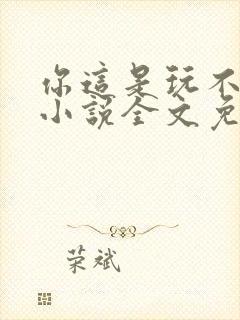 你這是玩不
小說全文免
荣斌